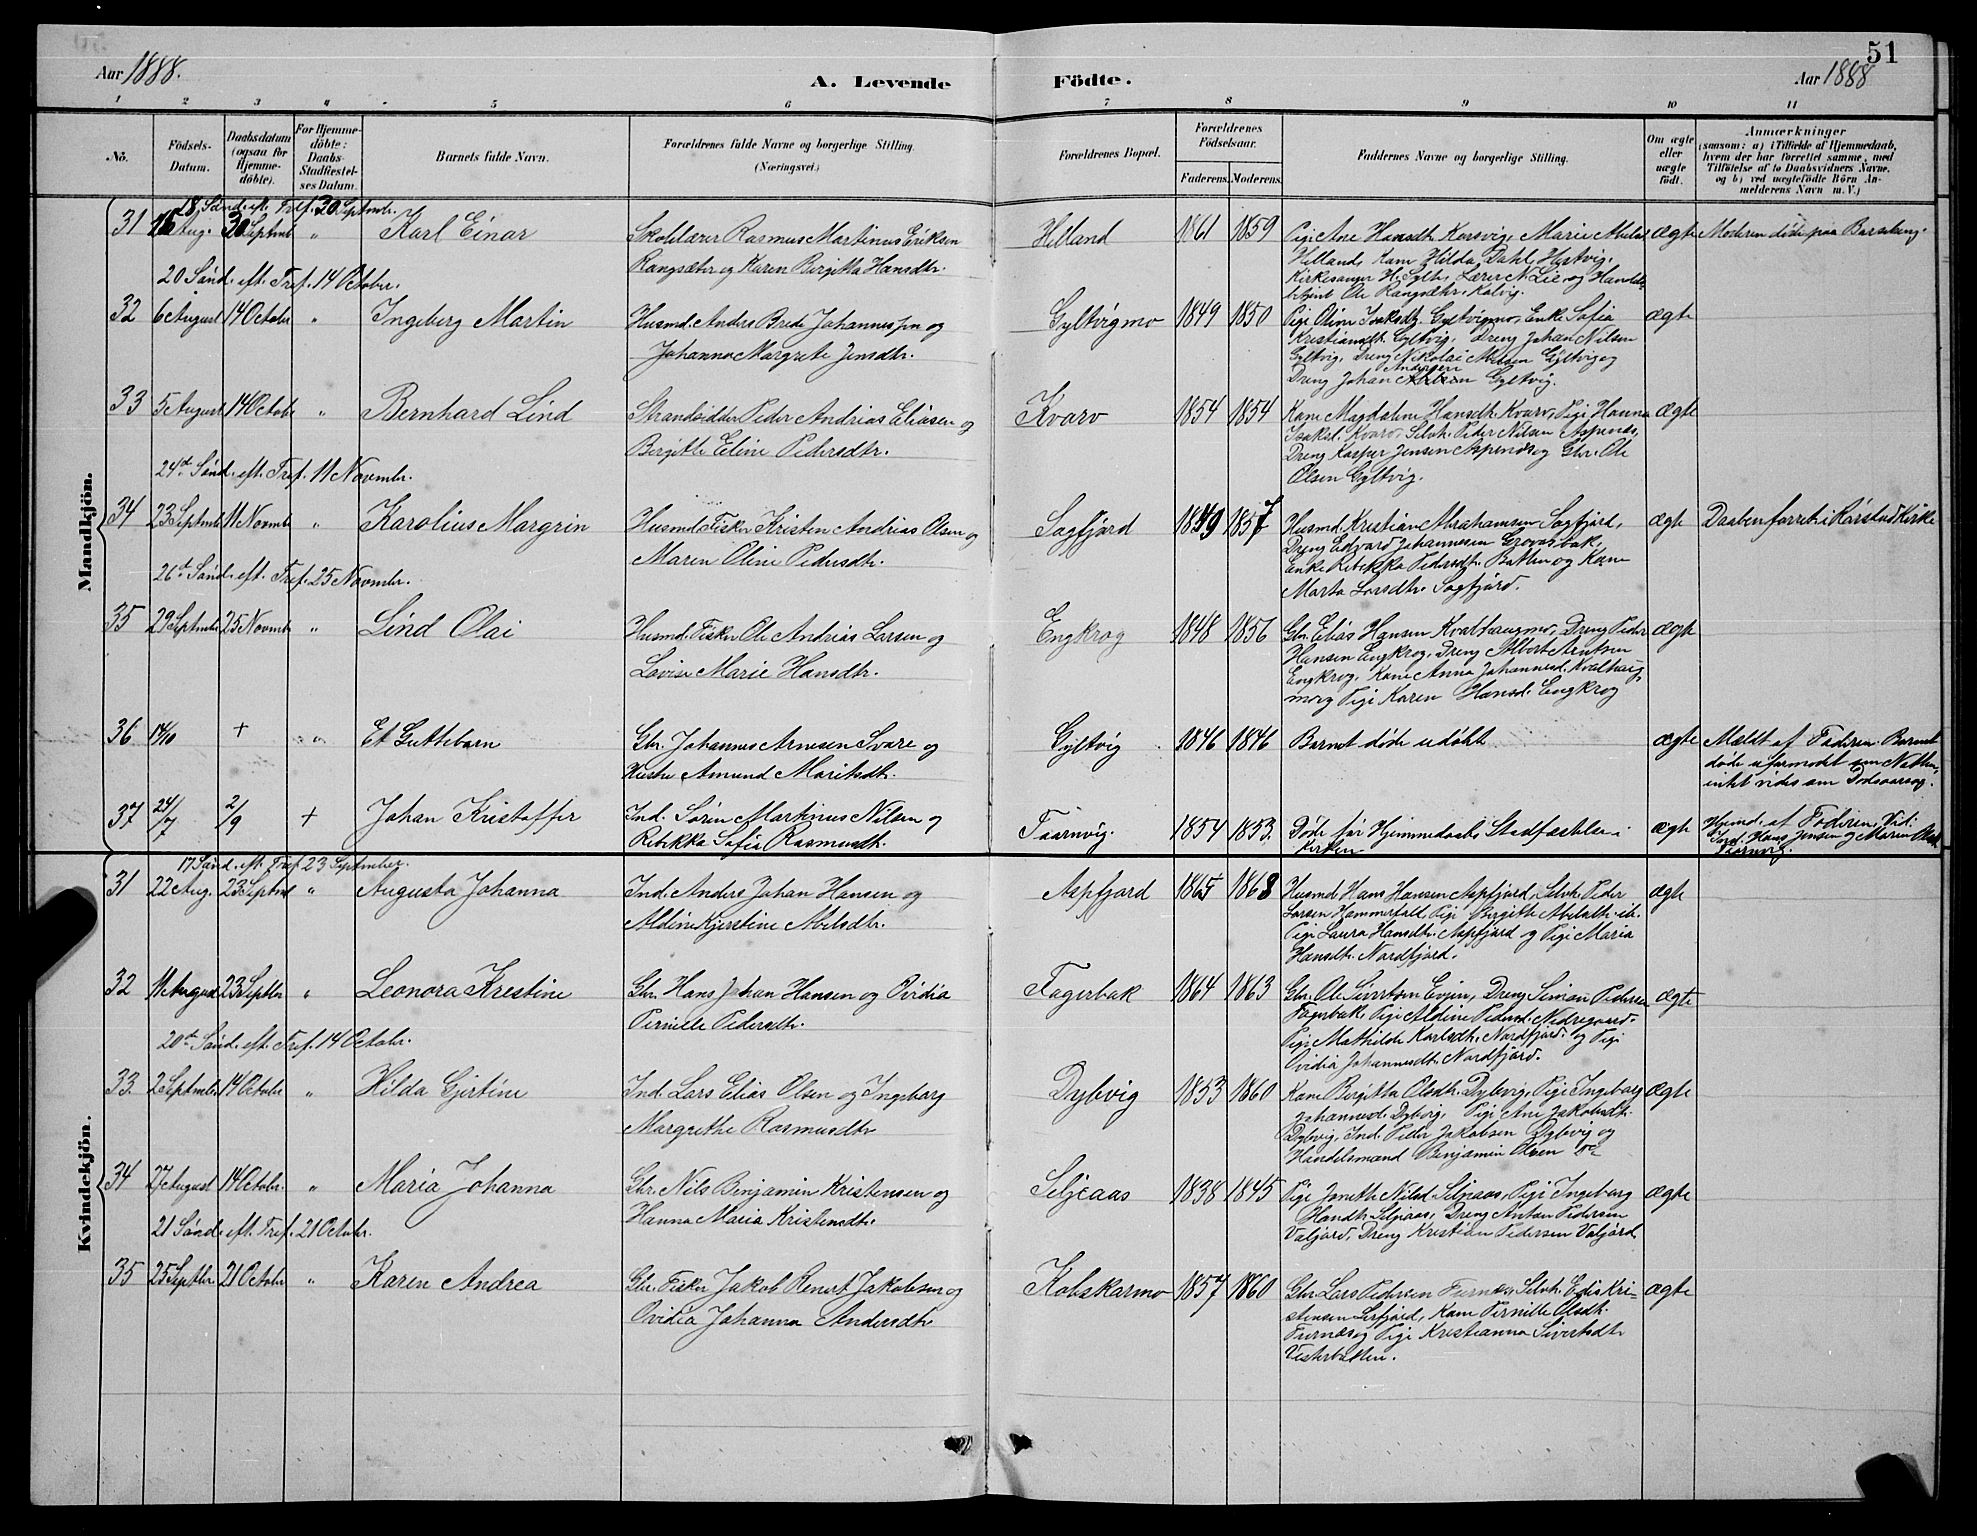 51
Aar 1888.
A. Levende Födte.
Aar 1888
1 2 3 4 5 6 7 8 9 10 11
No.
Födsels-
Datum.
Daabsdatum
(ogsaa for
Hjemme-
döbte).
For Hjemme-
döbte:
Daabs-
Stadfæstel-
ses Datum.
Barnets fulde Navn.
Forældrenes fulde Navne og borgerlige Stilling.
(Næringsvei.)
Forældrenes Bopæl.
Forældrenes
Födselsaar.
Faderens. Moderens.
Faddernes Navne og borgerlige Stilling.
Om ægte
eller
uægte
födt.
Anmærkninger
(saasom: a) i Tilfælde af Hjemmedaab,
hvem der har forrettet samme, med
Tilföielse af to Daabsvidners Navne.
og b) ved uægtefödte Börn An-
melderens Navn m. V.)
Mandkjön.
18 Sönd. eft. Tref. 30 Septmbr.
31 Aug. 30 Septmb " Karl Einar
Skolelærer Rasmus Martinus Eriksen
Rangsæter og Karen Birgitta Hansdtr.
Helland 1861 1859
Pige Ane Hansdtr. Korsvig, Marie Abels
Helland, Kone Hilda Dahl, Hestvig,
Kirkesanger H. Sylt, Lærer N. Lie og Handels-
betjent Ole Rangsæter, Kalvig.
ægte
Moderen döde paa Barselseng.
20 Sönd. eft. Tref. 14 October.
32 6 August 14 Octobr " Ingeberg Martin
Husmd. Anders Brede Johannessen og
Johanna Margrete Jensdtr.
Gyltvigmo 1849 1850
Pige Oline Isaksdtr. Gyltvigmo, Enke Sofia
Kristiansdtr. Gyltvig, Dreng Johan Nilsen
Gyltvig, Dreng Nikolai Nilsen Gyltvig og
Dreng Johan Andersen Gyltvig.
ægte
33 5 August 14 Octobr " Bernhard Lind
Strandsidder Peder Andrias Eliasen og
Birgitte Eline Pedersdtr.
Kvarv 1854 1854
Kone Magdalene Hansdtr. Kvarv, Pige Hanna
Isaksd. Kvarv, Selvh. Peder Nilsen Aspenæs,
Dreng Kasper Jensen Aspenæs og Gbr. Ole
Olsen Gyltvig.
ægte
24de Sönd. eft. Tref. 11 Novembr.
34 23 Septmbr 11 Novmb " Karolius Margrin
Husmd. Fisker Kristen Andrias Olsen og
Maren Oline Pedersdtr.
Sagfjord 1849 1857
Husmd. Kristian Abrahamsen Sagfjord,
Dreng Edvard Johannesen Grovasbak,
Enke Rebekka Pedersdtr. Batten og Kone
Marta Larsdtr. Sagfjord.
ægte
Daaben forret. i Rörstad Kirke
26de Sönd. eft. Tref. 25 Novmbr.
35 29 Septmbr 25 Novmbr " Lind Olai
Husmd. Fisker Ole Andrias Larsen og
Lovise Marie Hansdtr.
Engkrog 1848 1856
Gbr. Elias Hansen Kvalhaugmo, Dreng Peder
Hansen Engkrog, Dreng Albert Arntsen
Engkrog, Kone Anna Johannesd. Kvalhaug-
mo og Pige Karen Hansd. Engkrog
ægte
36 14/10 + " Et Guttebarn
Gbr. Johannes Arnesen Svare og
Hustru Amund Maritsdtr.
Gyltvig 1846 1846
Barnet döde udöbt
ægte
Meldt af Faderen. Barnet
döde uformodet om Natten,
intet vides om Dödsaarsag.
37 24/7 2/9 + Johan Kristoffer
Ind. Sören Martinus Nilsen og
Rebekka Sofia Rasmusdtr.
Taarnvig. 1854 1853.
Döde för Hjemmedaabs Stadfæstelse i
Kirken
ægte
Hjemd. af Faderen, Vid:
Ind. Hans Jensen og Maren Olsd.
Taarnvig.
Kvindekjön.
17 Sönd. eft. Tref. 23 September.
31 22 Aug. 23 Septmb " Augusta Johanna
Ind. Anders Johan Hansen og
Aldine Kjerstine Abelsdtr.
Aspfjord 1865 1868
Husmd. Hans Hansen Aspfjord, Selvh. Peder
Larsen Hammerfald, Pige Birgitte Abelsdtr. ib.
Pige Laura Hansdtr. Aspfjord og Pige Maria
Hansdtr. Nordfjord.
ægte
32 11 August 23 Septbr " Leonora Krestine
Gbr. Hans Johan Hansen og Ovidia
Pernille Pedersdtr.
Fagerbak 1864 1863
Gbr. Ole Sivertsen Evjen, Dreng Simon Pedersen
Fagerbak, Pige Aldine Pedersd. Nedregaard.
Pige Mathilde Karlsdtr. Nordfjord og Pige
Ovidia Johannesdtr. Nordfjord.
ægte
20de Sönd. eft. Tref. 14 Octobr.
33. 2 Septmbr 14 Octobr " Hilda Gjertine
Ind. Lars Elias Olsen og Ingeborg
Margrethe Rasmusdtr
Dybvig 1853 1860
Kone Birgitta Olsdtr. Dybvig, Pige Ingeborg
Johannesd. Dybvig, Pige Ane Jakobsdtr.
Dybvig, Ind. Peder Jakobsen Dybvig og
Handelsmand Benjamin Olsen
ægte
34 27 August 14 Octobr. " Maria Johanna
Gbr. Nils Benjamin Kristensen og
Hanna Maria Kristensdtr.
Seljeaas 1838 1845
Pige Jonette Nilsd. Seljeaas, Pige Ingeborg
Hansdtr. Seljeaas, Dreng Anton Pedersen
Valjord, Dreng Kristian Pedersen Valjord
ægte
21 Sönd. eft. Tref. 21 Octobr.
35 25 Septbr. 21 Octobr " Karen Andrea
Gbr. Fisker Jakob Renert Jakobsen og
Ovidia Johanna Andersdtr
Kobskarmo 1857 1860
Gbr. Lars Pedersen Furnæs, Selvh. Edis Kri-
stensen Lerfjord, Kone Pernille Olsdtr.
Furnæs og Pige Kristianna Sivertsdtr
Vesterbatten.
ægte